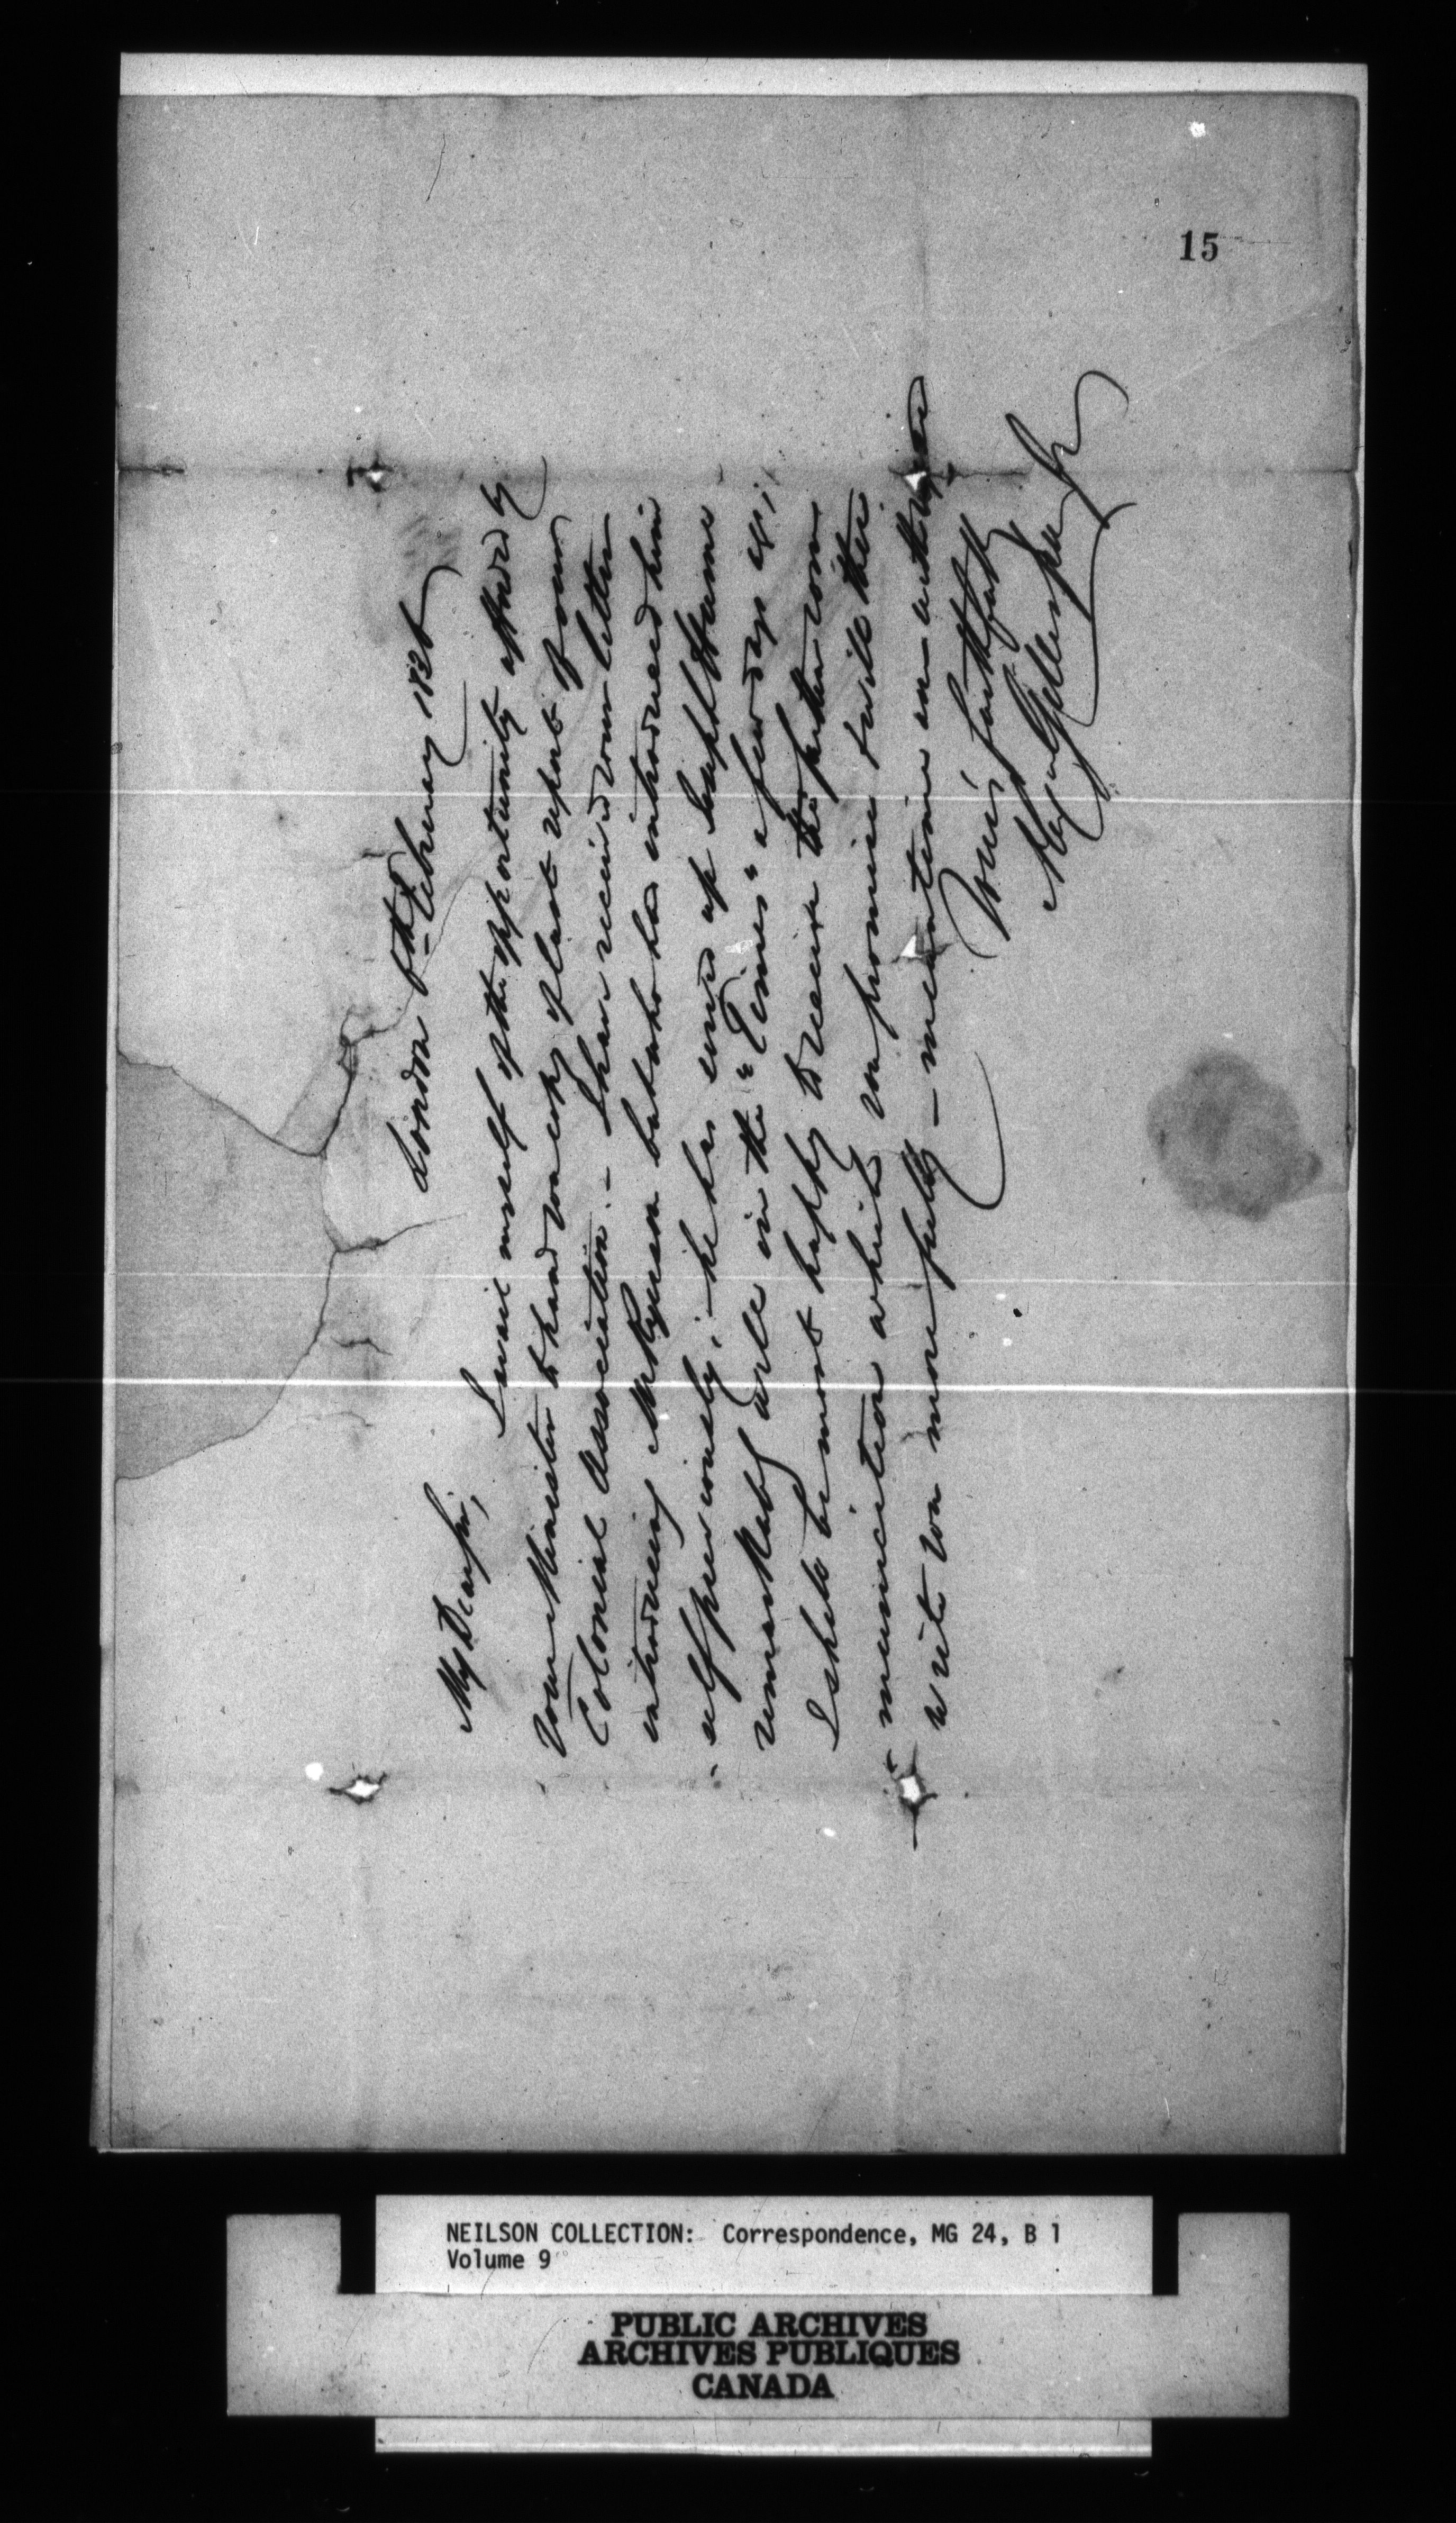 15
London 6th February 1836
My Dear Sir,
I avail myself of the opportunity afforded by
your Minister to hand you copy of last report of our
Colonial Association. – I have received your letter
introducing Mr Ryerson but who had introduced him
-self previously; – he has come up Capt Hume
remarkably well in the "Times" a few days ago;
I shall be most happy to receive the further com
-munication which you promise & will then
write you more fully – meantime
Yours faithfully
NEILSON COLLECTION: Correspondence, MG 24, B 1
Volume 9
PUBLIC ARCHIVES
ARCHIVES PUBLIQUES
CANADA